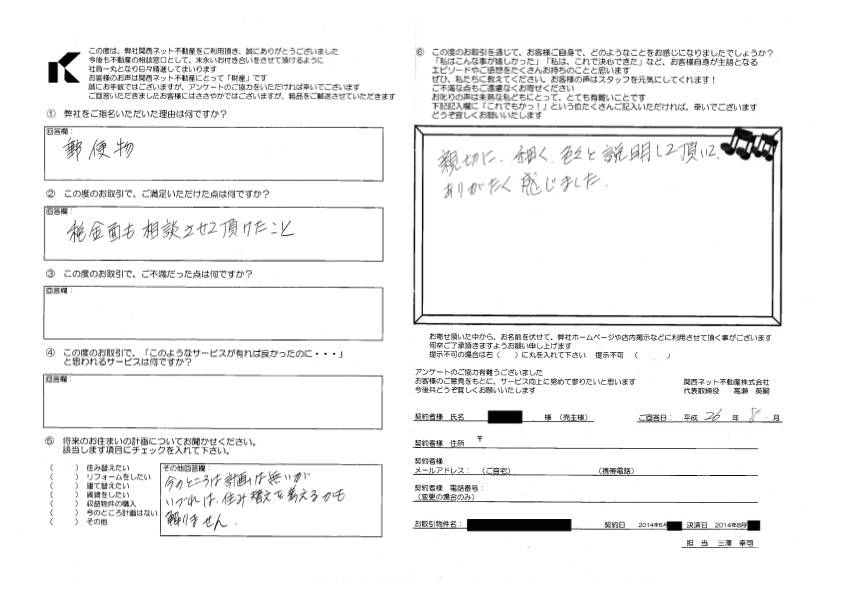 この度は、弊社関西ネット不動産をご利用頂き、誠にありがとうございました
今後も不動産の相談窓口として、末永いお付き合いをさせて頂けるように
社員一丸となり日々精進してまいります
お客様のお声は関西ネット不動産にとって「財産」です
誠にお手数ではございますが、アンケートのご協力をいただければ幸いでございます
ご回答いただきましたお客様にはささやかではございますが、粗品をご郵送させていただきます
① 弊社をご指名いただいた理由は何ですか?
回答欄:
郵便物
② この度のお取引で、ご満足いただけた点は何ですか?
回答欄:
税金面も相談させて頂けたこと
③ この度のお取引で、ご不満だった点は何ですか?
回答欄:
④ この度のお取引で、「このようなサービスが有れば良かったのに・・・」
と思われるサービスは何ですか?
回答欄:
⑤ 将来のお住まいの計画についてお聞かせください。
該当します項目にチェックを入れて下さい。
( ) 住み替えたい
( ) リフォームをしたい
( ) 建て替えたい
( ) 賃貸をしたい
( ) 収益物件の購入
( ) 今のところ計画はない
( ) その他
その他回答欄:
今のところは計画は無いが
いづれは、住み替えを考えるかも
解りません.
⑥ この度のお取引を通じて、お客様ご自身で、どのようなことをお感じになりましたでしょうか?
「私はこんな事が嬉しかった」「私は、これで決心できた」など、お客様自身が主語となる
エピソードやご感想をたくさんお持ちのことと思います
ぜひ、私たちに教えてください。お客様の声はスタッフを元気にしてくれます!
ご不満な点もご遠慮なくお寄せください
お叱りの声は未熟な私どもにとって、とても有難いことです
下記記入欄に「これでもかっ!」という位たくさんご記入いただければ、幸いでございます
どうぞ宜しくお願いいたします
親切に、細く、色々と説明して頂いて、
ありがたく感じました.
お寄せ頂いた中から、お名前を伏せて、弊社ホームページや店内掲示などに利用させて頂く事がございます
何卒ご了承頂きますようお願い申し上げます
提示不可の場合は右( )に丸を入れて下さい 提示不可 ( )
アンケートのご協力有難うございました
お客様のご意見をもとに、サービス向上に努めて参りたいと思います
今後共どうぞ宜しくお願いいたします
関西ネット不動産株式会社
代表取締役 高瀬 英嗣
契約者様 氏名 様 (売主様) ご回答日: 平成 26 年 8 月
契約者様 住所 〒
契約者様
メールアドレス: (ご自宅) (携帯電話)
契約者様 電話番号:
(変更の場合のみ)
お取引物件名: 契約日 2014年6月 決済日 2014年8月
担 当 三澤 幸司